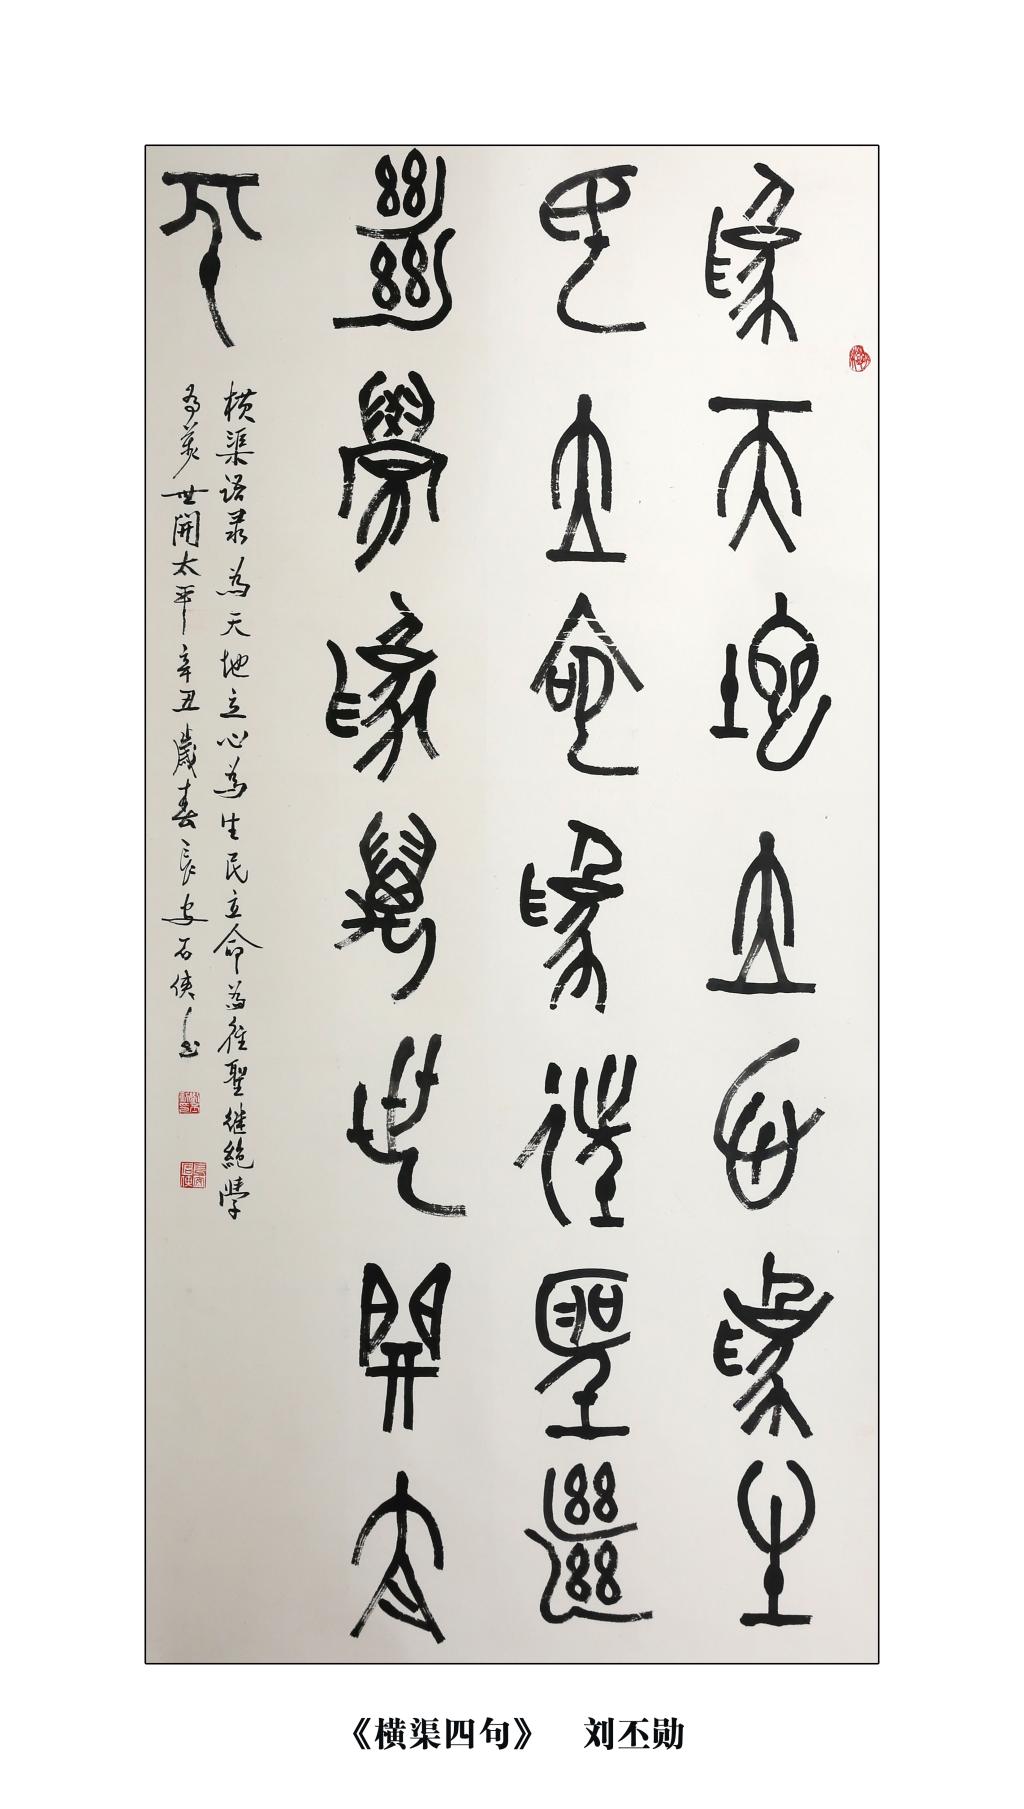 為天地立心為生
民立命為往聖繼
絕學為萬世開太
平
横渠语录為天地立心為生民立命為往聖继絶學
为萬世開太平辛丑歲春長安石侠书
《横渠四句》 刘丕勋